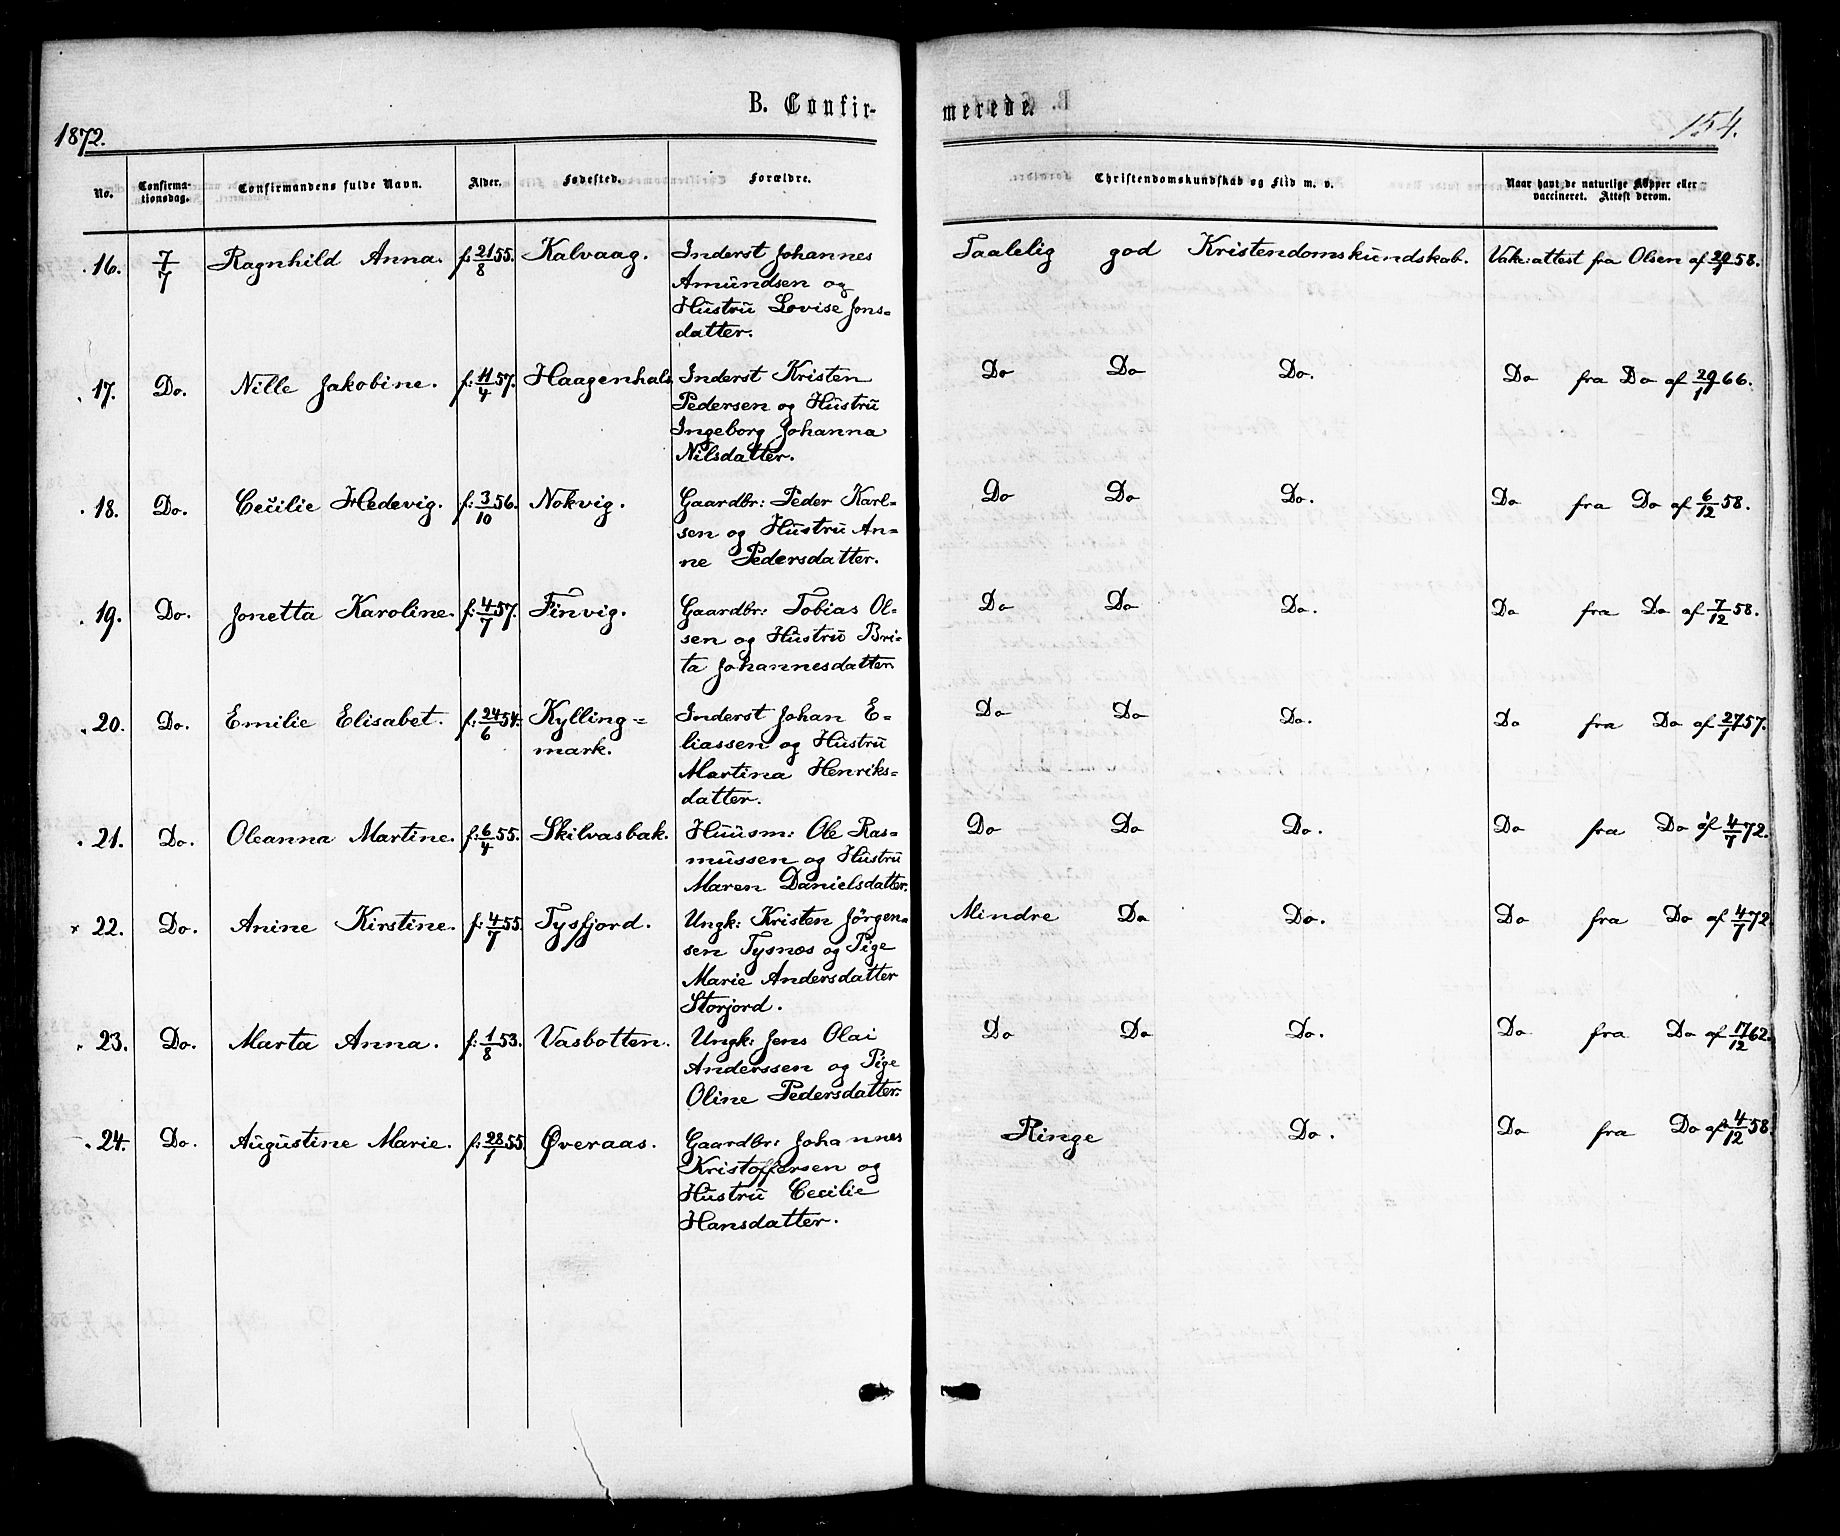 B. Confir-
merede.
1872.
154.
No.
Confirma-
tionsdag.
Confirmandens fulde Navn.
Alder.
Fødested.
Forældre.
Christendomskundskab og Flid m. v.
Naar havt de naturlige Kopper eller
vaccineret. Attest derom.
16. 7/7 Ragnhild Anna. f: 21/8 55. Kalvaag. Inderst Johannes
Amundsen og
Hustru Lovise Jons-
datter.
Taalelig god Kristendomskundskab. Vak: attest fra Olsen af 29/1 58.
17. Do. Nille Jakobine. f: 11/4 57. Haagenhals. Inderst Kristen
Pedersen og Hustru
Ingeborg Johanna
Nilsdatter.
Do Do Do. Do fra Do af 29/1 66.
18. Do. Cecilie Hedevig. f: 3/10 56. Nokvig. Gaardbr: Peder Karl-
sen og Hustru An-
ne Pedersdatter.
Do Do Do. Do fra Do af 6/12 58.
19. Do. Jonetta Karoline. f: 4/7 57. Finvig. Gaardbr: Tobias Ol-
sen og Hustru Bri-
ta Johannesdatter
Do Do Do. Do fra Do af 7/12 58.
20. Do. Emilie Elisabet. f: 24/6 54. Kylling=
mark.
Inderst Johan E-
liassen og Hustru
Martina Henriks=
datter.
Do Do Do. Do fra Do af 27/1 57.
21. Do. Oleanna Martine. f: 6/4 55. Skilvasbak. Huusm: Ole Ras-
mussen og Hustru
Maren Danielsdatter.
Do Do Do. Do fra Do af 4/7 72.
22. Do. Anine Kirstine. f: 4/7 55. Tysfjord. Ungk: Kristen Jørgen-
sen Tysnæs og Pige
Marie Andersdatter
Storjord.
Mindre Do Do. Do fra Do af 4/7 72
23. Do. Marta Anna. f: 1/8 53. Vasbotten. Ungk: Jens Olai
Anderssen og Pige
Oline Pedersdatter.
Do Do Do. Do fra Do af 17/12 62.
24. Do. Augustine Marie. f: 28/7 55. Øveraas. Gaardbr: Johannes
Kristoffersen og
Hustru Cecilie
Hansdatter.
Ringe Do. Do fra Do af 4/12 58.